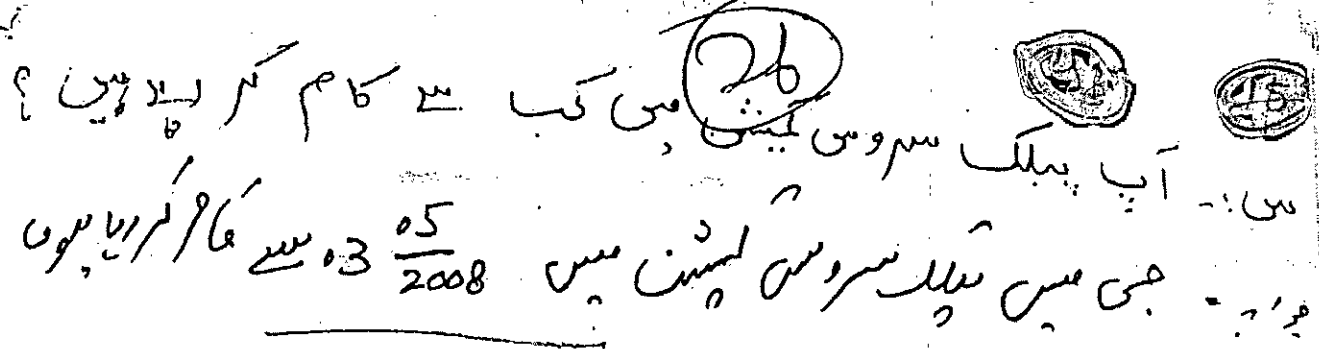 26
س:۔ آپ پبلک سروس کمیشن میں کب سے کام کر رہے ہیں ؟
جواب۔ جی میں پبلک سروس کمیشن میں 03 05/2008 سے کام کر رہا ہوں